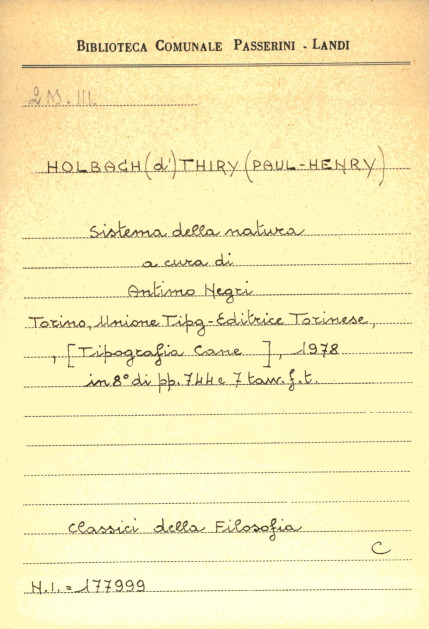 BIBLIOTECA COMUNALE PASSERINI - LANDI
2 M. III
HOLBACH (d') THIRY (PAUL-HENRY)
Sistema della natura
a cura di
Antimo Negri
Torino, Unione Tipg-Editrice Torinese,
, [Tipografia Cane ], 1978
in 8° di pp. 744 e 7 tavv. f. t.
Classici della Filosofia
C
N.I. = 177999